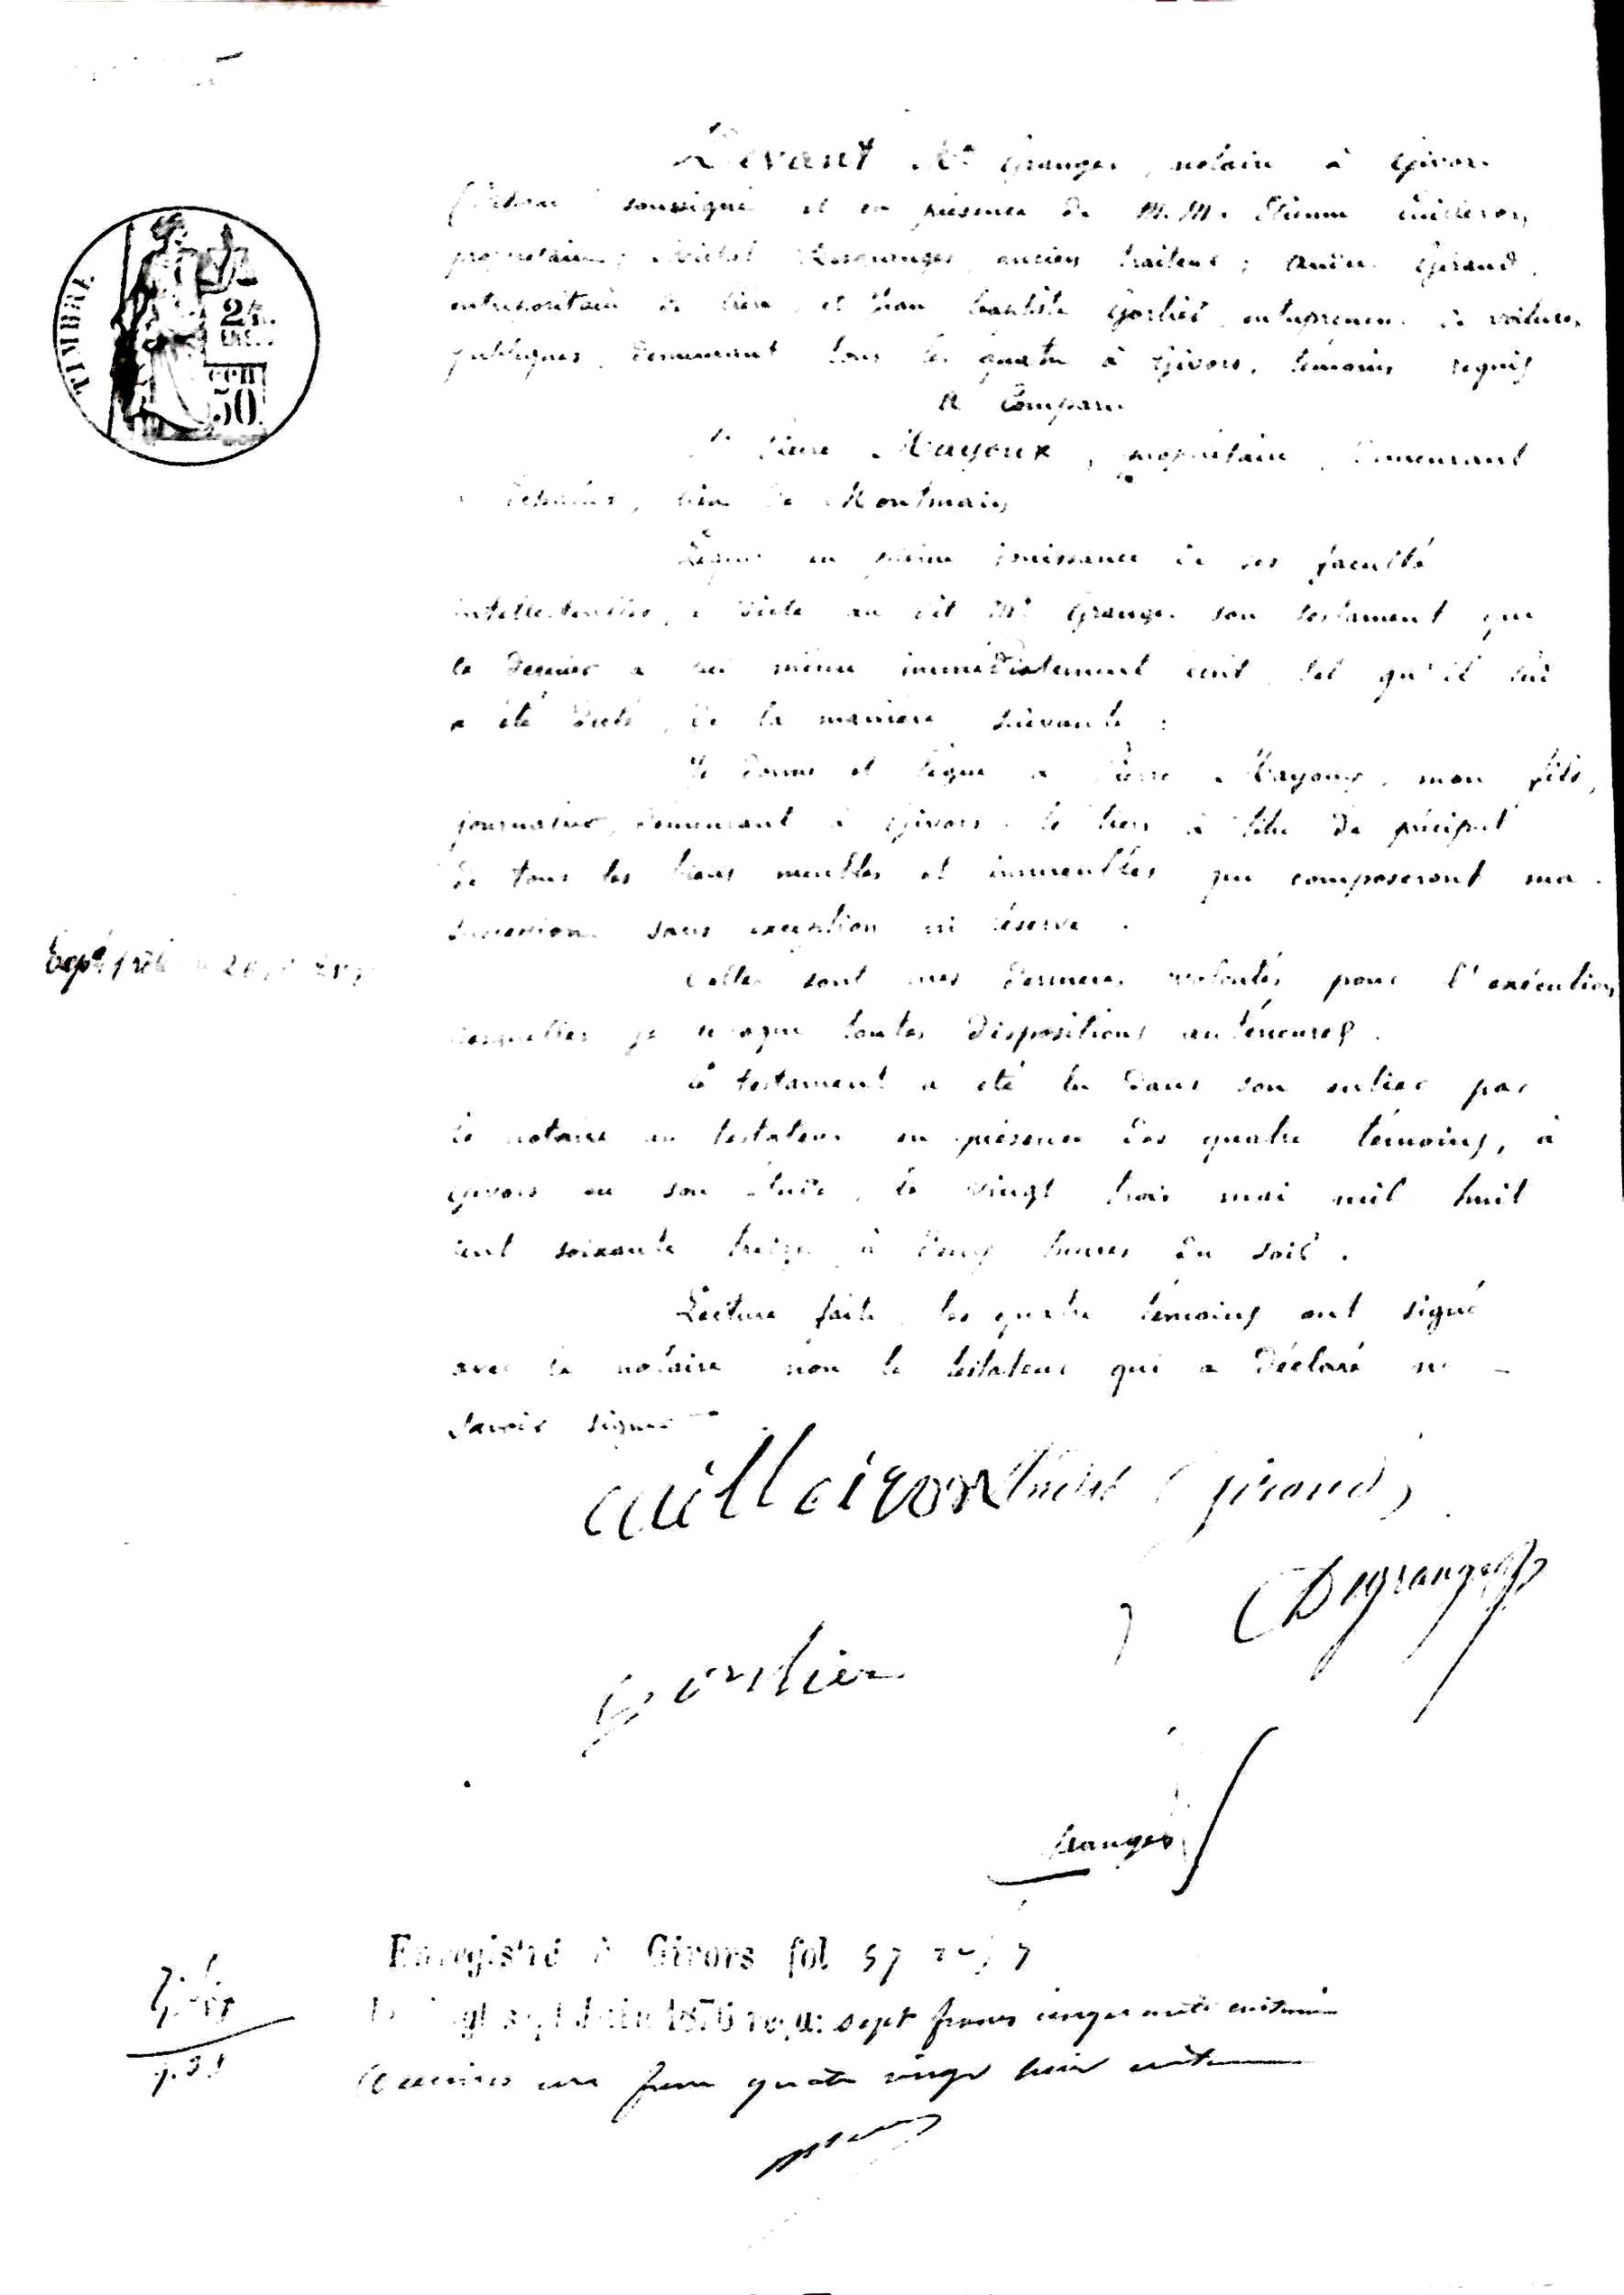 TIMBRE
50
Devant Me Granger, notaire à Givors
soussigné et en présence de M.M. Etienne
propriétaire; ancien traiteur; Giraud,
entrepositaire de bière et Jean Baptiste Gorlier entrepreneur de voitures
publiques, demeurant tous les quatre à Givors, témoins requis
A Comparu
Sr Pierre Mayoux, propriétaire, demeurant
lieu de Montmain
Lequel en pleine jouissance de ses facultés
intellectuelles, a dicté au dit Me Granger son testament que
ce dernier a lui même immédiatement écrit tel qu'il lui
a été dicté, de la manière suivante :
Je donne et lègue à Pierre Mayoux, mon fils,
journalier, demeurant à Givors, le tiers à titre de préciput
de tous les biens meubles et immeubles qui composeront ma
succession sans exception ni réserve.
Telles sont mes dernières volontés pour l'exécution
desquelles je révoque toutes dispositions antérieures.
Ce testament a été lu dans son entier par
le notaire au testateur en présence des quatre témoins, à
Givors en son étude, le vingt trois mai mil huit
cent soixante treize à cinq heures du soir.
Lecture faite les quatre témoins ont signé
avec le notaire non le testateur qui a déclaré ne
savoir signer
Giraud
Gorlier
Granger
Enregistré à Givors fol 57
1876 reçu: sept francs cinquante centimes
Décimes un franc quatre vingt huit centimes